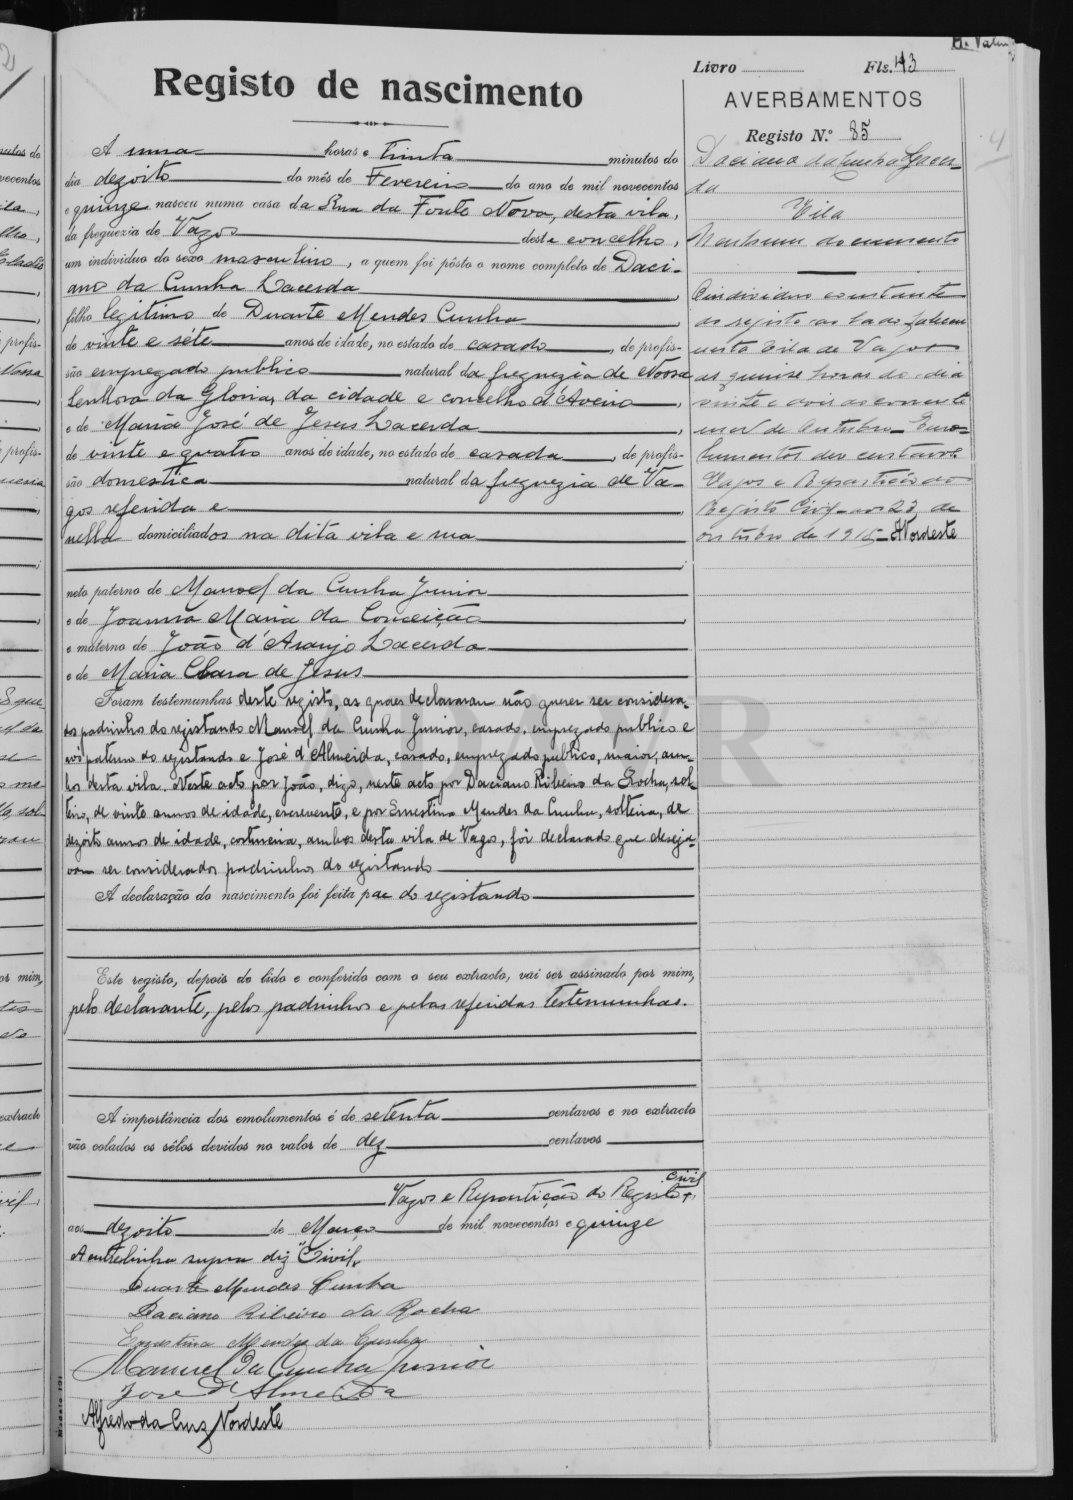 Livro Fls. 43
Registo de nascimento
A uma horas e trinta minutos do
dia dezoito do mês de Fevereiro do ano de mil novecentos
e quinze nasceu numa casa da Rua da Fonte Nova, desta vila,
da freguezia de Vagos deste concelho,
um individuo do sexo masculino, a quem foi pôsto o nome completo de Daci-
ano da Cunha Lacerda
filho legitimo de Duarte Mendes Cunha
de vinte e séte anos de idade, no estado de casado, de profis-
são empregado publico natural da freguezia de Nossa
Senhora da Gloria, da cidade e concelho d'Aveiro,
e de Maria José de Jesus Lacerda,
de vinte e quatro anos de idade, no estado de casada, de profis-
são domestica natural da freguezia de Va-
gos referida e
nella domiciliados na dita vila e rua
neto paterno de Manoel da Cunha Junior
e de Joanna Maria da Conceição,
e materno de João d'Araujo Lacerda
e de Maria Clara de Jesus
Foram testemunhas deste registo, as quaes declararam não querer ser considera-
dos padrinhos do registando Manoel da Cunha Junior, casado, empregado publico e
avô paterno do registando e José d'Almeida, casado, empregado publico, maior, am-
bos desta vila. Neste acto por João, digo, neste acto por Daciano Ribeiro da Rocha, sol-
teiro, de vinte annos de idade, escrevente, e por Ernestina Mendes da Cunha, solteira, de
dezóito annos de idade, costureira, ambos desta vila de Vagos, foi declarado que deseja-
vam ser considerados padrinhos do registando
A declaração do nascimento foi feita pae do registando
Este registo, depois de lido e conferido com o seu extracto, vai ser assinado por mim,
pelo declarante, pelos padrinhos e pelas referidas testemunhas.
A importância dos emolumentos é de setenta centavos e no extracto
vão colados os sêlos devidos no valor de dez centavos
Civil
Vagos e Repartição do Registo,
aos dezoito de Março de mil novecentos e quinze
A entrelinha supra diz "Civil"
Duarte Mendes Cunha
Daciano Ribeiro da Rocha
Ernestina Mendes da Cunha
Manuel da Cunha Junior
José d'Almeida
Alfredo da Cruz Nordeste
AVERBAMENTOS
Registo N.º 85
Daciano da Cunha Lacer-
da
Vila
Nenhum documento
O individuo constante
do registo ao lado faleceu
nesta vila de Vagos
ás quinze horas do dia
vinte e dois do corrente
mez de Outubro. Emo-
lumentos dez centavos.
Vagos e Repartição do
Registo Civil aos 23 de
outubro de 1915 - Nordeste